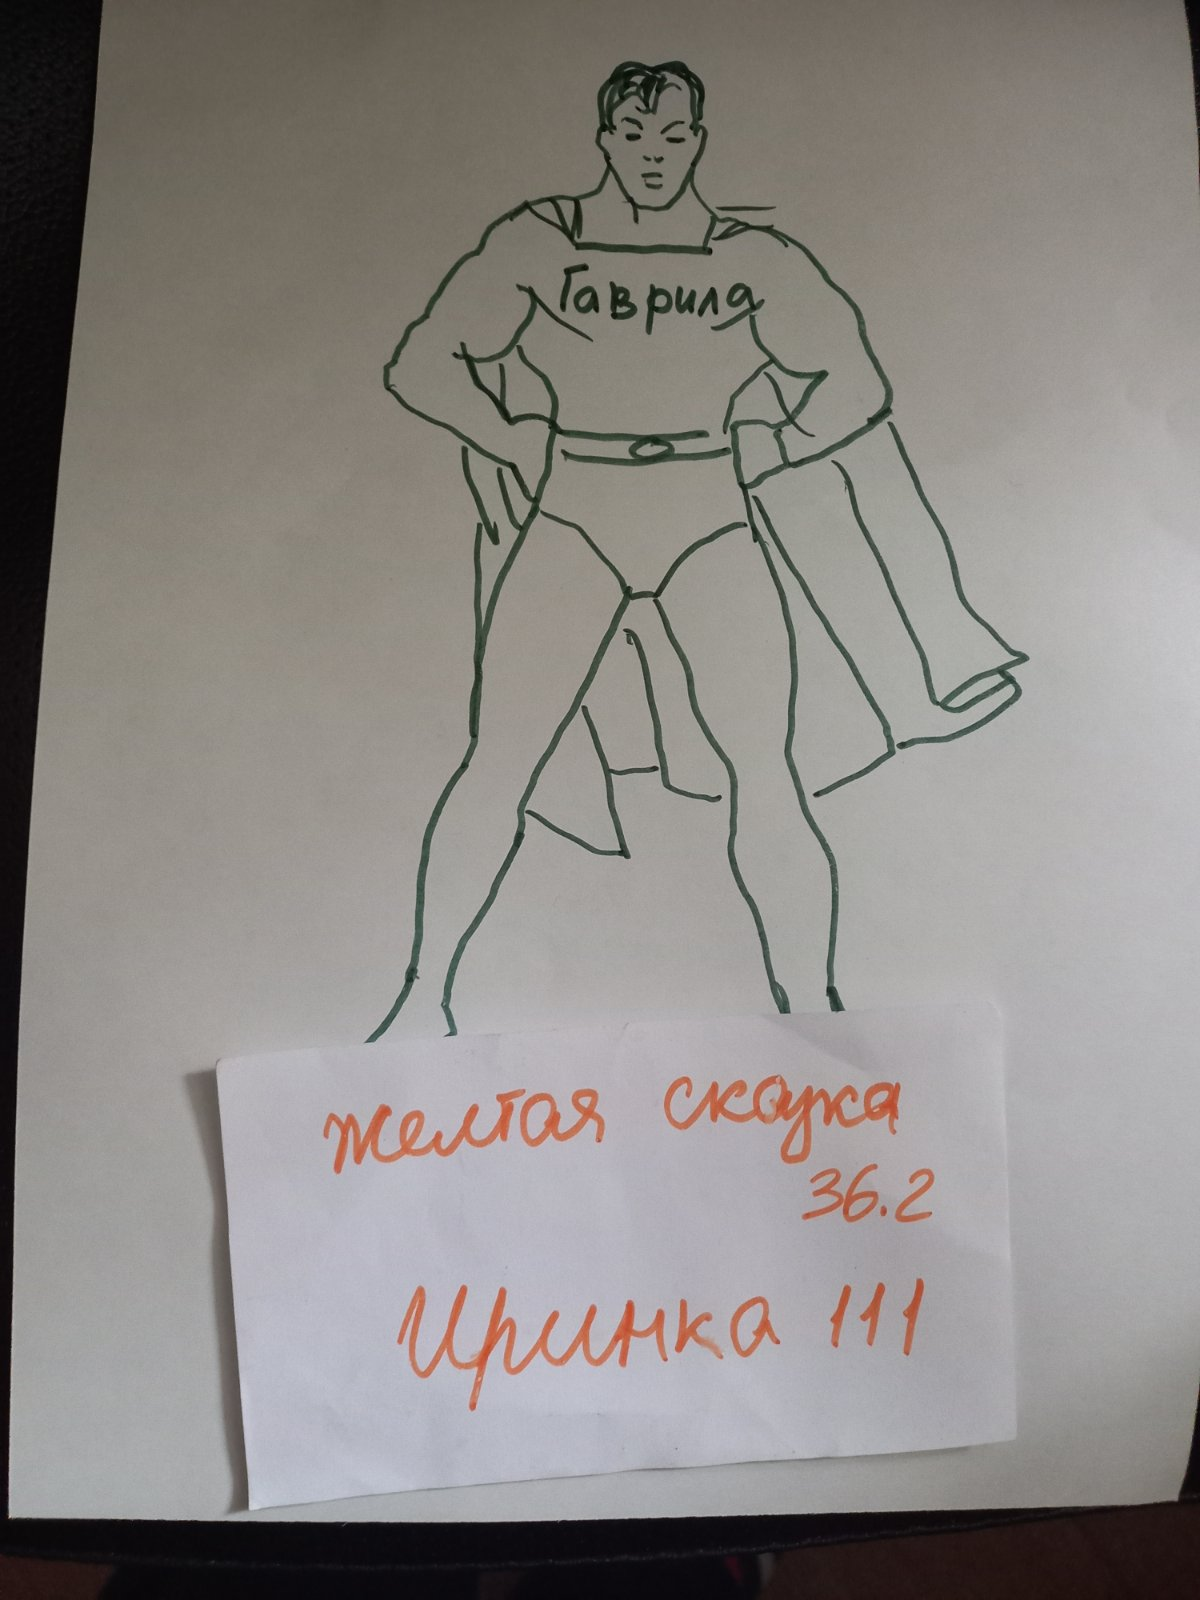 Гаврила
желтая скаука
36.2
Иринка 111